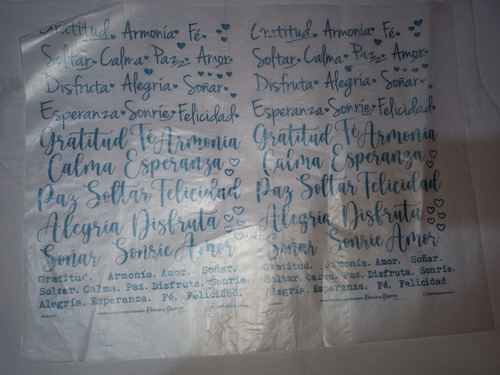 Gratitud. Armonía. Fé.
Soltar. Calma. Paz. Amor.
Disfruta. Alegría. Soñar.
Esperanza. Sonríe. Felicidad.
Gratitud Fé Armonía
Calma Esperanza
Paz Soltar Felicidad
Alegría Disfruta
Soñar Sonríe Amor
Gratitud. Armonía. Amor. Soñar.
Soltar. Calma. Paz. Disfruta. Sonríe.
Alegría. Esperanza. Fé. Felicidad.
Gratitud. Armonía. Fé.
Soltar. Calma. Paz. Amor.
Disfruta. Alegría. Soñar.
Esperanza. Sonríe. Felicidad.
Gratitud Fé Armonía
Calma Esperanza
Paz Soltar Felicidad
Alegría Disfruta
Soñar Sonríe Amor
Gratitud. Armonía. Amor. Soñar.
Soltar. Calma. Paz. Disfruta. Sonríe.
Alegría. Esperanza. Fé. Felicidad.